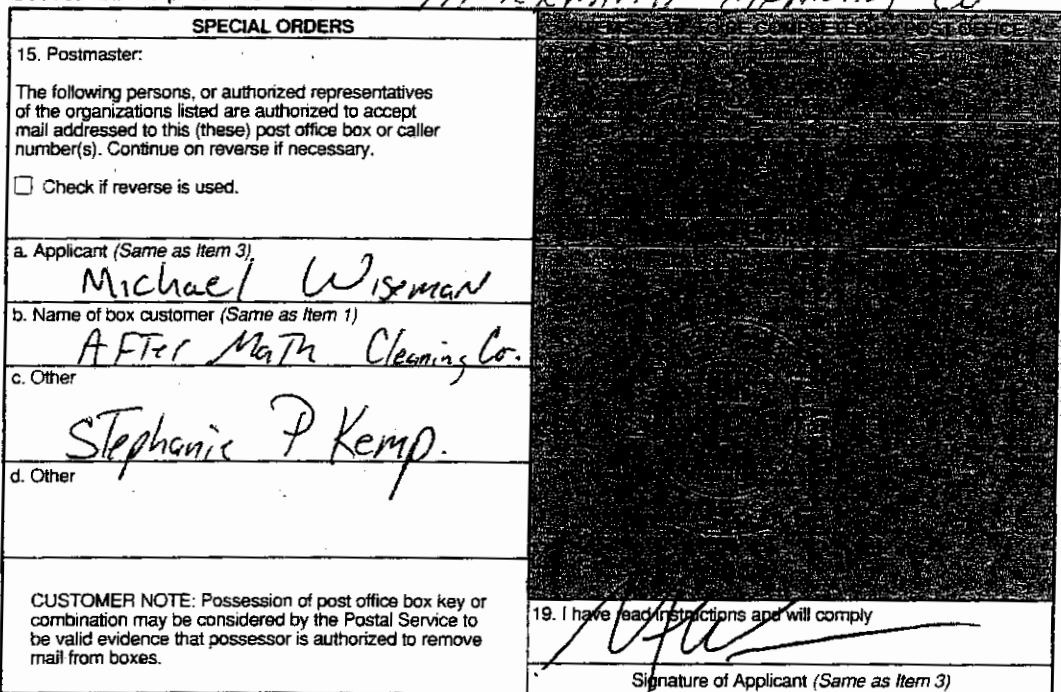 SPECIAL ORDERS
15. Postmaster:
The following persons, or authorized representatives
of the organizations listed are authorized to accept
mail addressed to this (these) post office box or caller
number(s). Continue on reverse if necessary.
Check if reverse is used.
a. Applicant (Same as Item 3)
Michael Wiseman
b. Name of box customer (Same as Item 1)
AFTer MaTh Cleaning Co.
c. Other
STephanie P Kemp.
d. Other
CUSTOMER NOTE: Possession of post office box key or
combination may be considered by the Postal Service to
be valid evidence that possessor is authorized to remove
mail from boxes.
COMPLETED BY POST OFFICE
19. I have read instructions and will comply
Signature of Applicant (Same as Item 3)